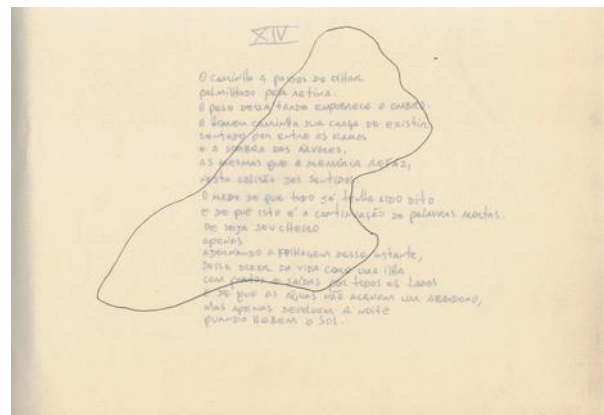 XIV
O caminho a passos do olhar
palmilhado pela retina.
O peso dessa tarde empobrece o ombro.
O homem caminha sua carga de existir
sentado por entre os ramos
e a sombra das árvores.
As mesmas que a memória refaz,
nesta colisão dos sentidos.
O medo de que tudo já tenha sido dito
e de que isto é a continuação de palavras mortas.
De seja seu cheiro
apenas
adornando a folhagem desse instante,
desse dizer da vida como uma ilha
com portos e saídas por todos os lados
e de que as águas não acenam um abandono,
mas apenas devolvem a noite
quando bebem o sol.